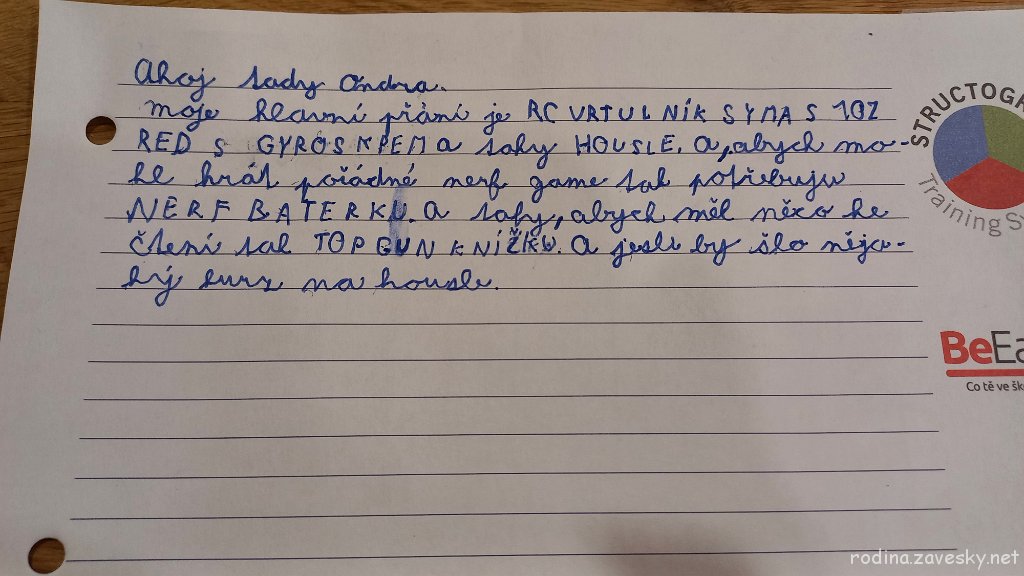 Ahoj tady Ondra.
moje hlavní přání je RC VRTULNÍK SYMA S 107
RED S GYROSKPEM a taky HOUSLE. A, abych mo-
hl hrát pořádné nerf game tak potřebuju
NERF BATERKU. A taky, abych měl něco ke
čtení tak TOP GUN KNÍŽKU. A jestli by šlo něja-
ký kurz na housle.
STRUCTOGR
Training Sy
BeEa
Co tě ve šk
rodina.zavesky.net